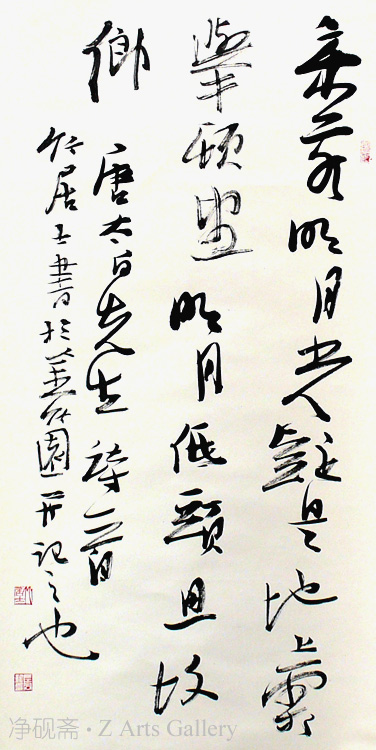 床前明月光疑是地上霜
舉頭望明月低頭思故
鄉
唐太白先生詩一首
竹居士書於竹園并記之也
净砚斋 · Z Arts Gallery